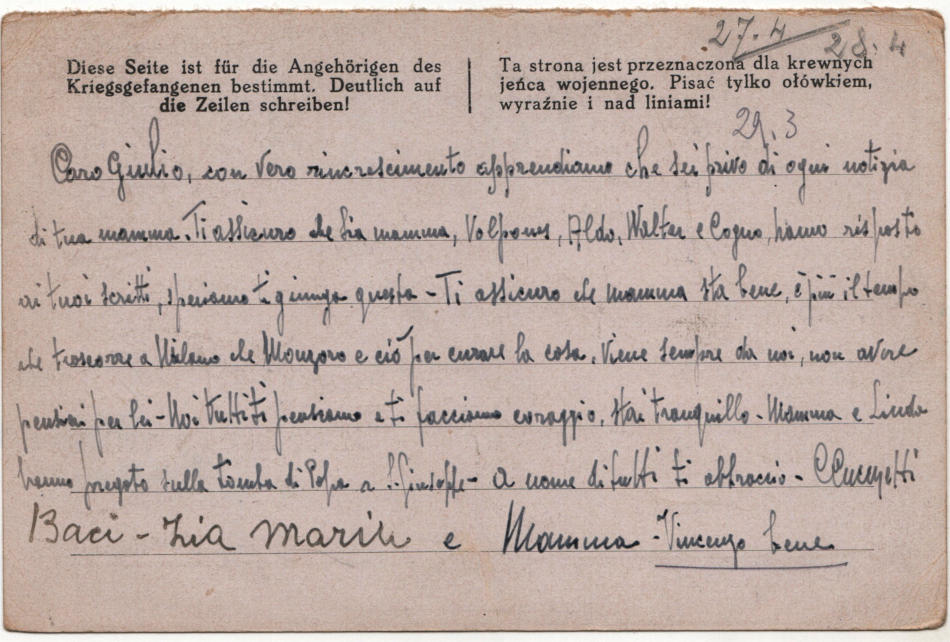 27.4
28.4
Diese Seite ist für die Angehörigen des
Kriegsgefangenen bestimmt. Deutlich auf
die Zeilen schreiben!
Ta strona jest przeznaczona dla krewnych
jeńca wojennego. Pisać tylko ołówkiem,
wyraźnie i nad liniami!
29.3
Caro Giulio, con vero rincrescimento apprendiamo che sei privo di ogni notizia
di tua mamma. Ti assicuro che sia mamma, Aldo, Walter e Cogno, hanno risposto
ai tuoi scritti, speriamo ti giunga questa - Ti assicuro che mamma sta bene, è più il tempo
che trascorre a Milano che Monzoro e ciò per curare la casa, viene sempre da noi, non avere
pensieri per lei - Noi tutti ti pensiamo e ti facciamo coraggio, stai tranquillo - Mamma e Linda
hanno pregato sulla tomba di Papa a S. Giuseppe - a nome di tutti ti abbraccio -
Baci - Zia Maria e Mamma - Vincenzo bene